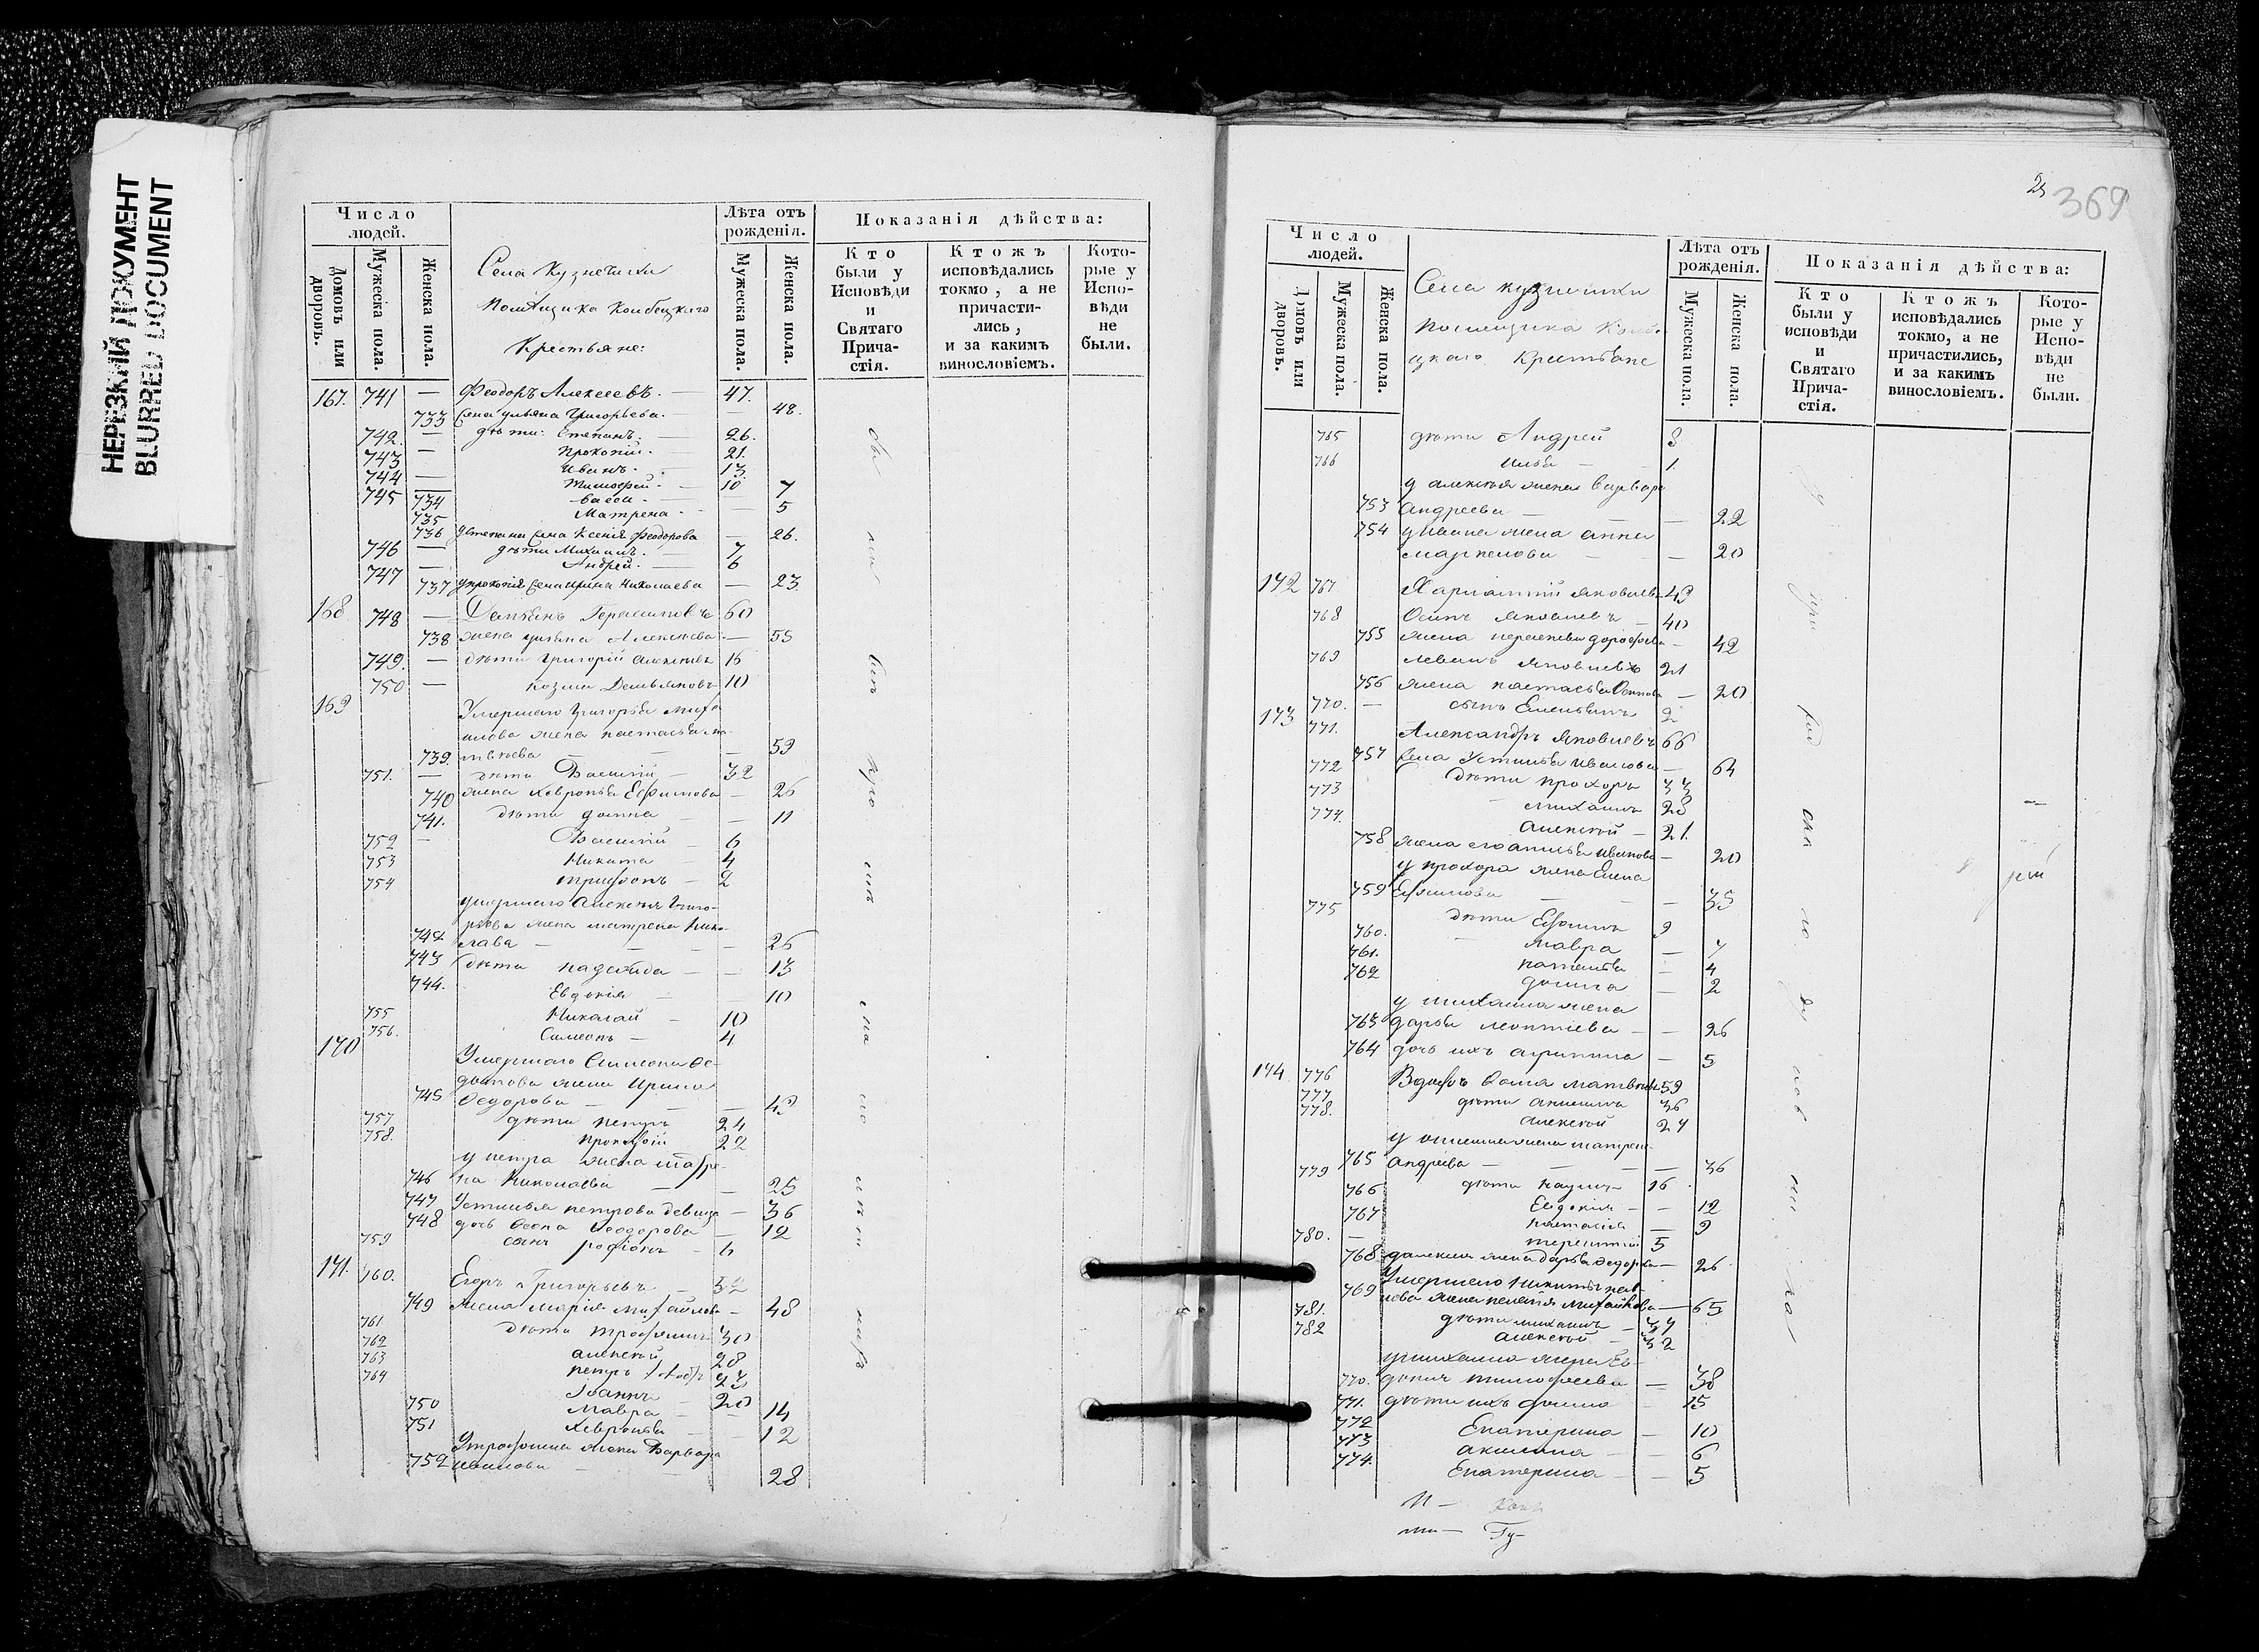 НЕРЕЗКИЙ ДОКУМЕНТ
BLURRED DOCUMENT
Число людей.
Домовъ или дворовъ.
Мужеска пола.
Женска пола.
Села Кузнечихи
Помѣщика
Крестьяне:
Лѣта отъ рожденія.
Мужеска пола.
Женска пола.
Показанія дѣйства:
Кто были у Исповѣди и Святаго Причастія.
Ктожъ исповѣдались токмо, а не причастились, и за какимъ винословіемъ.
Которые у Исповѣди не были.
167. 741 — Феодоръ Алексеевъ. — 47.
733 Ульяна Григорьева. — 48.
742. — дѣти: Степанъ. — 26.
743 — Прокопій. 21.
744 — Иванъ. 13.
745 — Тимофей. — 10
734 7
735 Матрена — 5
736 Устепана Ксенія Феодорова — 26.
746 — дѣти Михаилъ. — 7
747 — Андрей. — 6
737 Упрокопія Ирина Николаева — 23.
168 748 — Демьянъ Герасимовъ 60
738 жена Ульяна Алексеева — 55
749. — дѣти Григорій 16
750 — козма Демьяновъ 10
169
Умершаго Григорья Миха
илова жена настасья ма
739. твѣева — 59
751. — дѣти Василій — 32
740 жена Хевронья Ефимова — 26
741. дѣти домна — 11
752 — Василій — 6
753 Никита — 4
754 трифонъ — 2
умершаго Алексея Григо-
рьева жена матрена Нико-
742 лава — 26
743 дѣти надежда — 13
744. Евдокія 10
755 Николай — 10
756. Симеонъ — 4
170
Умершаго Симеона Ѳе-
дотова жена Ирина
745 Ѳедорова — 49
757 дѣти петръ 24
758. прокофій 22
у петра жена
746 на Николаева — 25
747 Устинья петрова девица — 36
748 дочь Ѳеодорова — 12
759 сынъ родіонъ — 6
171. 760. Егоръ Григорьевъ 52
749 жена Марія Михайлова — 48
761 дѣти трофимъ 30
762 алексей 28
763 петръ 23
764 Іоаннъ 20
750 Мавра — 14
751 Хевронья — 12
Утрофима жена Варвара
752 Иванова — 28
25 369
Число людей.
Домовъ или дворовъ.
Мужеска пола.
Женска пола.
Села кузнечихи
помещика
Крестьяне
Лѣта отъ рожденія.
Мужеска пола.
Женска пола.
Показанія дѣйства:
Кто были у исповѣди и Святаго Причастія.
Ктожъ исповѣдались токмо, а не причастились, и за какимъ винословіемъ.
Которые у Исповѣди не были.
765 дѣти Андрей 3
766 илья — 1
у алексѣя жена варвара
753 андреева — 22
754 у Ивана жена анна
20
172 767 Харлампій яковлевъ 43
768 Осипъ яковлевъ — 40
755 жена дорофеева — 42
769 яковлевъ 21
756 жена настасья — 20
770. — сынъ Емельянъ 2
173 771. Александръ яковлевъ 66
757 Устинья иванова — 64
772 дѣти прохоръ 33
773 михаилъ 28
774. алексей — 21.
758 жена его иванова — 20
у прохора жена Елена
759 Ефимова — 35
775 дѣти Ефимъ 9
760. мавра — 7
761. настасья — 4
762 домна — 2
у михаила жена
763 дарья леонтіева — 26
764 дочь ихъ агрипина — 5
174 776 Вдовъ Ѳома матвеевъ 59
777 дѣти 36
778. алексей 24
жена матрена
765 андреева — 36
779 дѣти наумъ 16
766 Евдокія — 12
767 настасія — 9
780. — терентій 5
768 жена дарья Ѳедорова — 26
Умершаго Никиты
769 жена пелагія Михайлова — 65
781. дѣти михаилъ —
782 алексей — 32
умихаила жена Ев-
770. докия тимофеева — 38
771. дѣти ихъ домна 15
772 Екатерина — 10
773 акилина — 6
774. Екатерина — 5